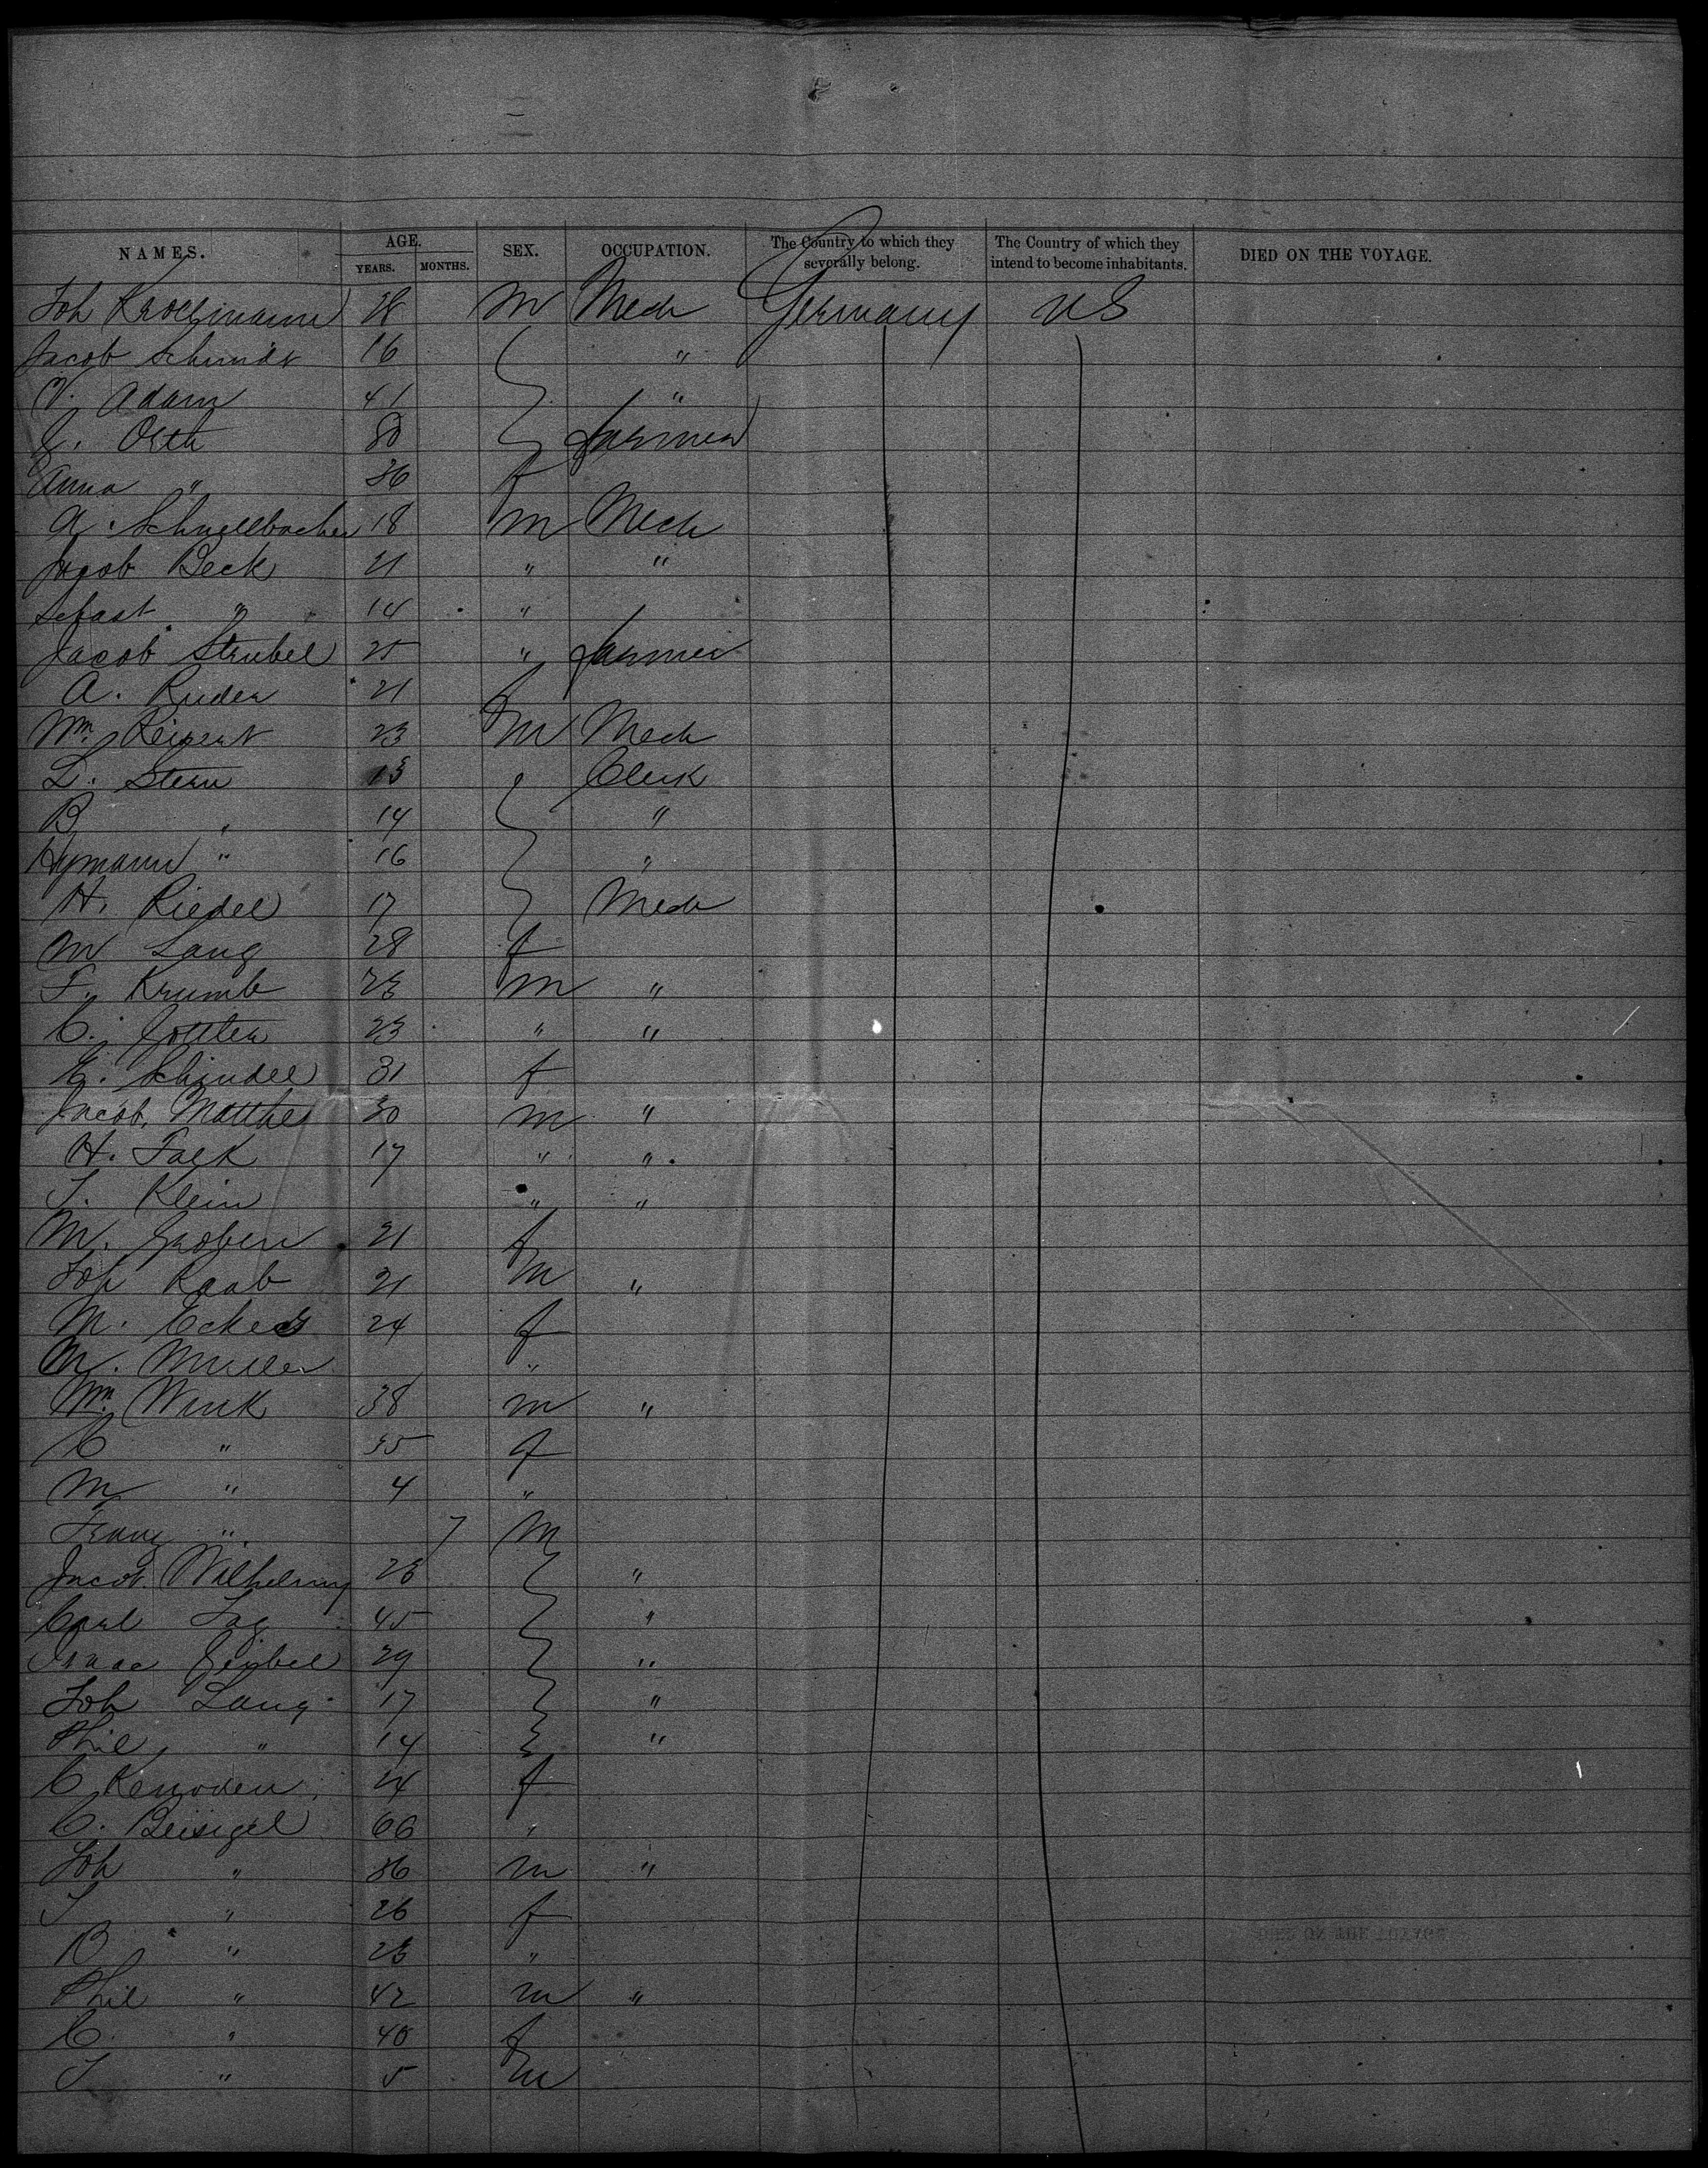 NAMES. AGE. SEX. OCCUPATION. The Country to which they severally belong. The Country of which they intend to become inhabitants. DIED ON THE VOYAGE.
YEARS. MONTHS.
Joh 28 m Mech Germany US
Jacob Schmidt 16 "
V. Adam 41 "
Orth 30 Farmer
Anna " 36 f
A. Schnellbacher 18 m Mech
Jacob Beck 21 " "
Sebast " 14 "
Jacob Strubel 25 " Farmer
A. Ruder 21 f
Wm. 23 m Mech
L. Stern 13 " Clerk
B " 14 "
Hymann " 16 "
H. Riedel 17 Mech
M Lang 28 f
F. Krumb 23 m "
C. 23 " "
E. Schindel 31 f
Jacob Matthes 30 m "
H. Falk 17 " "
J. Klein " "
M. Groben 21 f
Joh Raab 21 m "
M. Eckes 24 f
M. Muller "
Wm. Wink 38 m "
C " 35 f
M " 4 "
Franz " 7 m
Jacob Wilhelmy 23 "
Carl 45 "
Isaac Geibel 29 "
Joh Lang 17 "
Phil " 14 "
C 24 f
C. Beisigel 66 "
Joh " 36 m "
J " 26 f
B " 23 "
Phil " 42 m "
C. " 40 f
J " 5 m